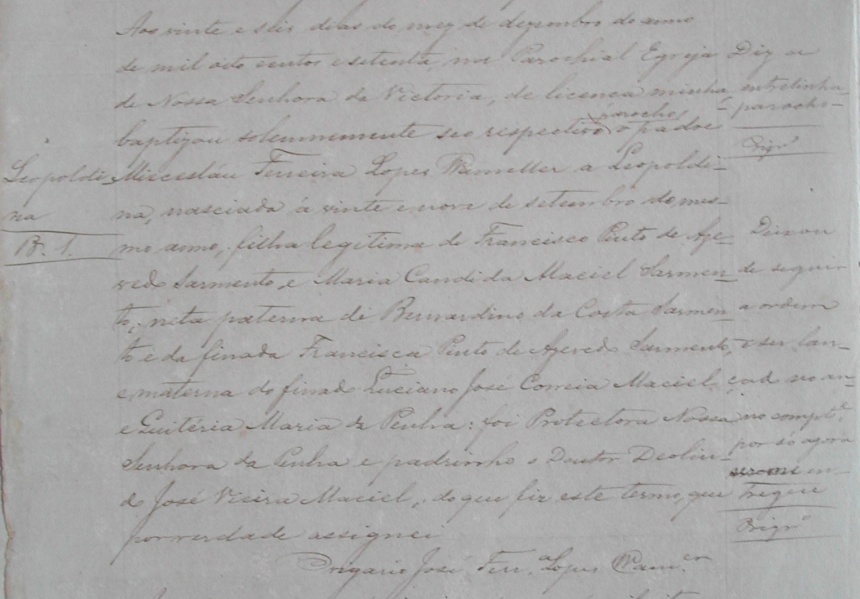 Aos vinte e seis dias do mez de dezembro do anno
de mil oito centos e setenta, na Parochial Egreja
de Nossa Senhora da Victoria, de licença minha
baptizou solemnemente seo respectivo parocho o padre
Miecesláu Ferreira Lopes Wanderley a Leopoldi-
na, nasciada á vinte e nove de setembro do mes-
mo anno, filha legitima de Francisco Pinto de Aze-
vedo Sarmento, e Maria Candida Maciel Sarmen-
to, neta paterna de Bernardino da Costa Sarmen-
to e da finada Francisca Pinto de Azevedo Sarmento,
e materna do finado Luciano José Correia Maciel
e Quitéria Maria da Penha: foi Protectora Nossa
Senhora da Penha e padrinho o Doutor Deolin-
do José Vieira Maciel, do que fiz este termo, que
por verdade assignei
José Ferr.ª Lopes
Leopoldi-
na
B. 1.
Diz a
entrelinha
parocho
Deixou
de seguir
a ordem
e seu lan-
çad no an-
no compt.e
por só agora
en-
tregue